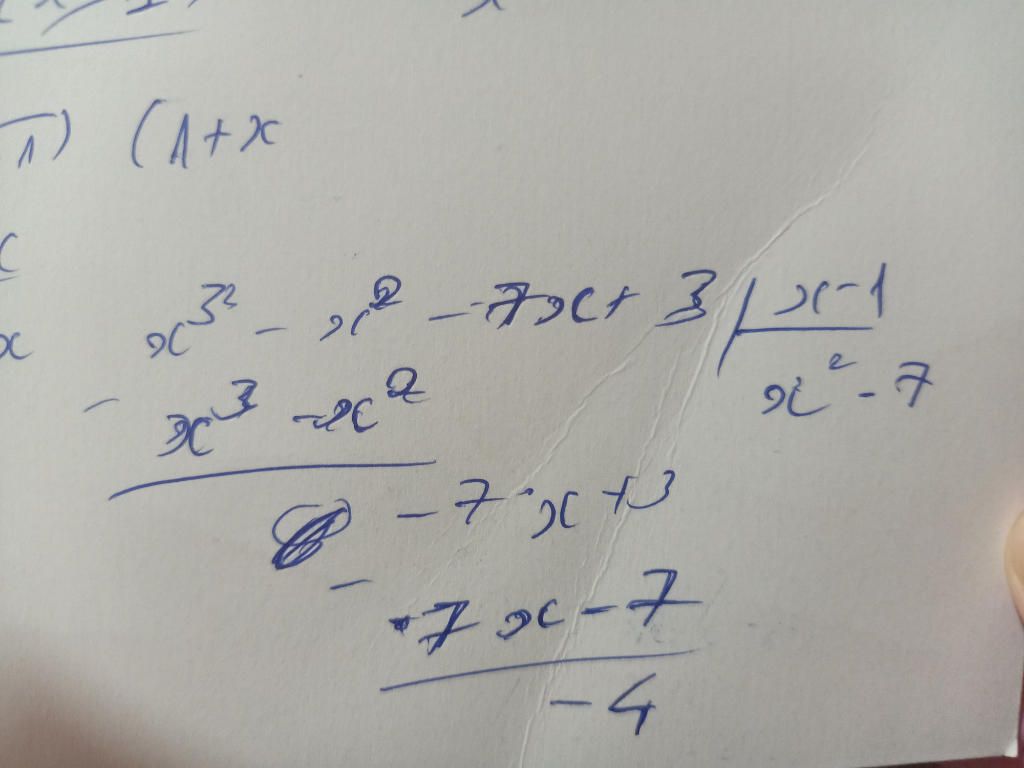 1) (1+x
x³ - x² - 7x + 3 | x - 1
- x³ - x² x² - 7
- 7x + 3
- -7x - 7
- 4